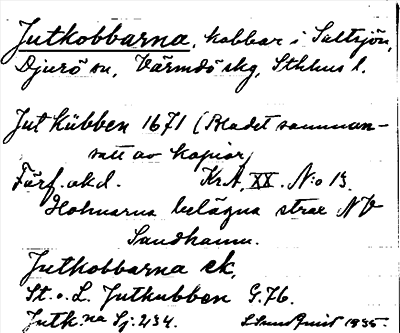 Jutkobbarna, kobbar i Saltsjön,
Djurö sn, Värmdö skg, Sthlms l.
Jut Kübben 1671 (Bladet samman-
satt av kopior)
Förf. okd. Kr.A. XX. N:o 13.
Holmarna belägna strax NV
Sandhamn.
Jutkobbarna ek.
St. o. L. Jutkubben G.76.
Jutk:na Sj. 234. 1935.